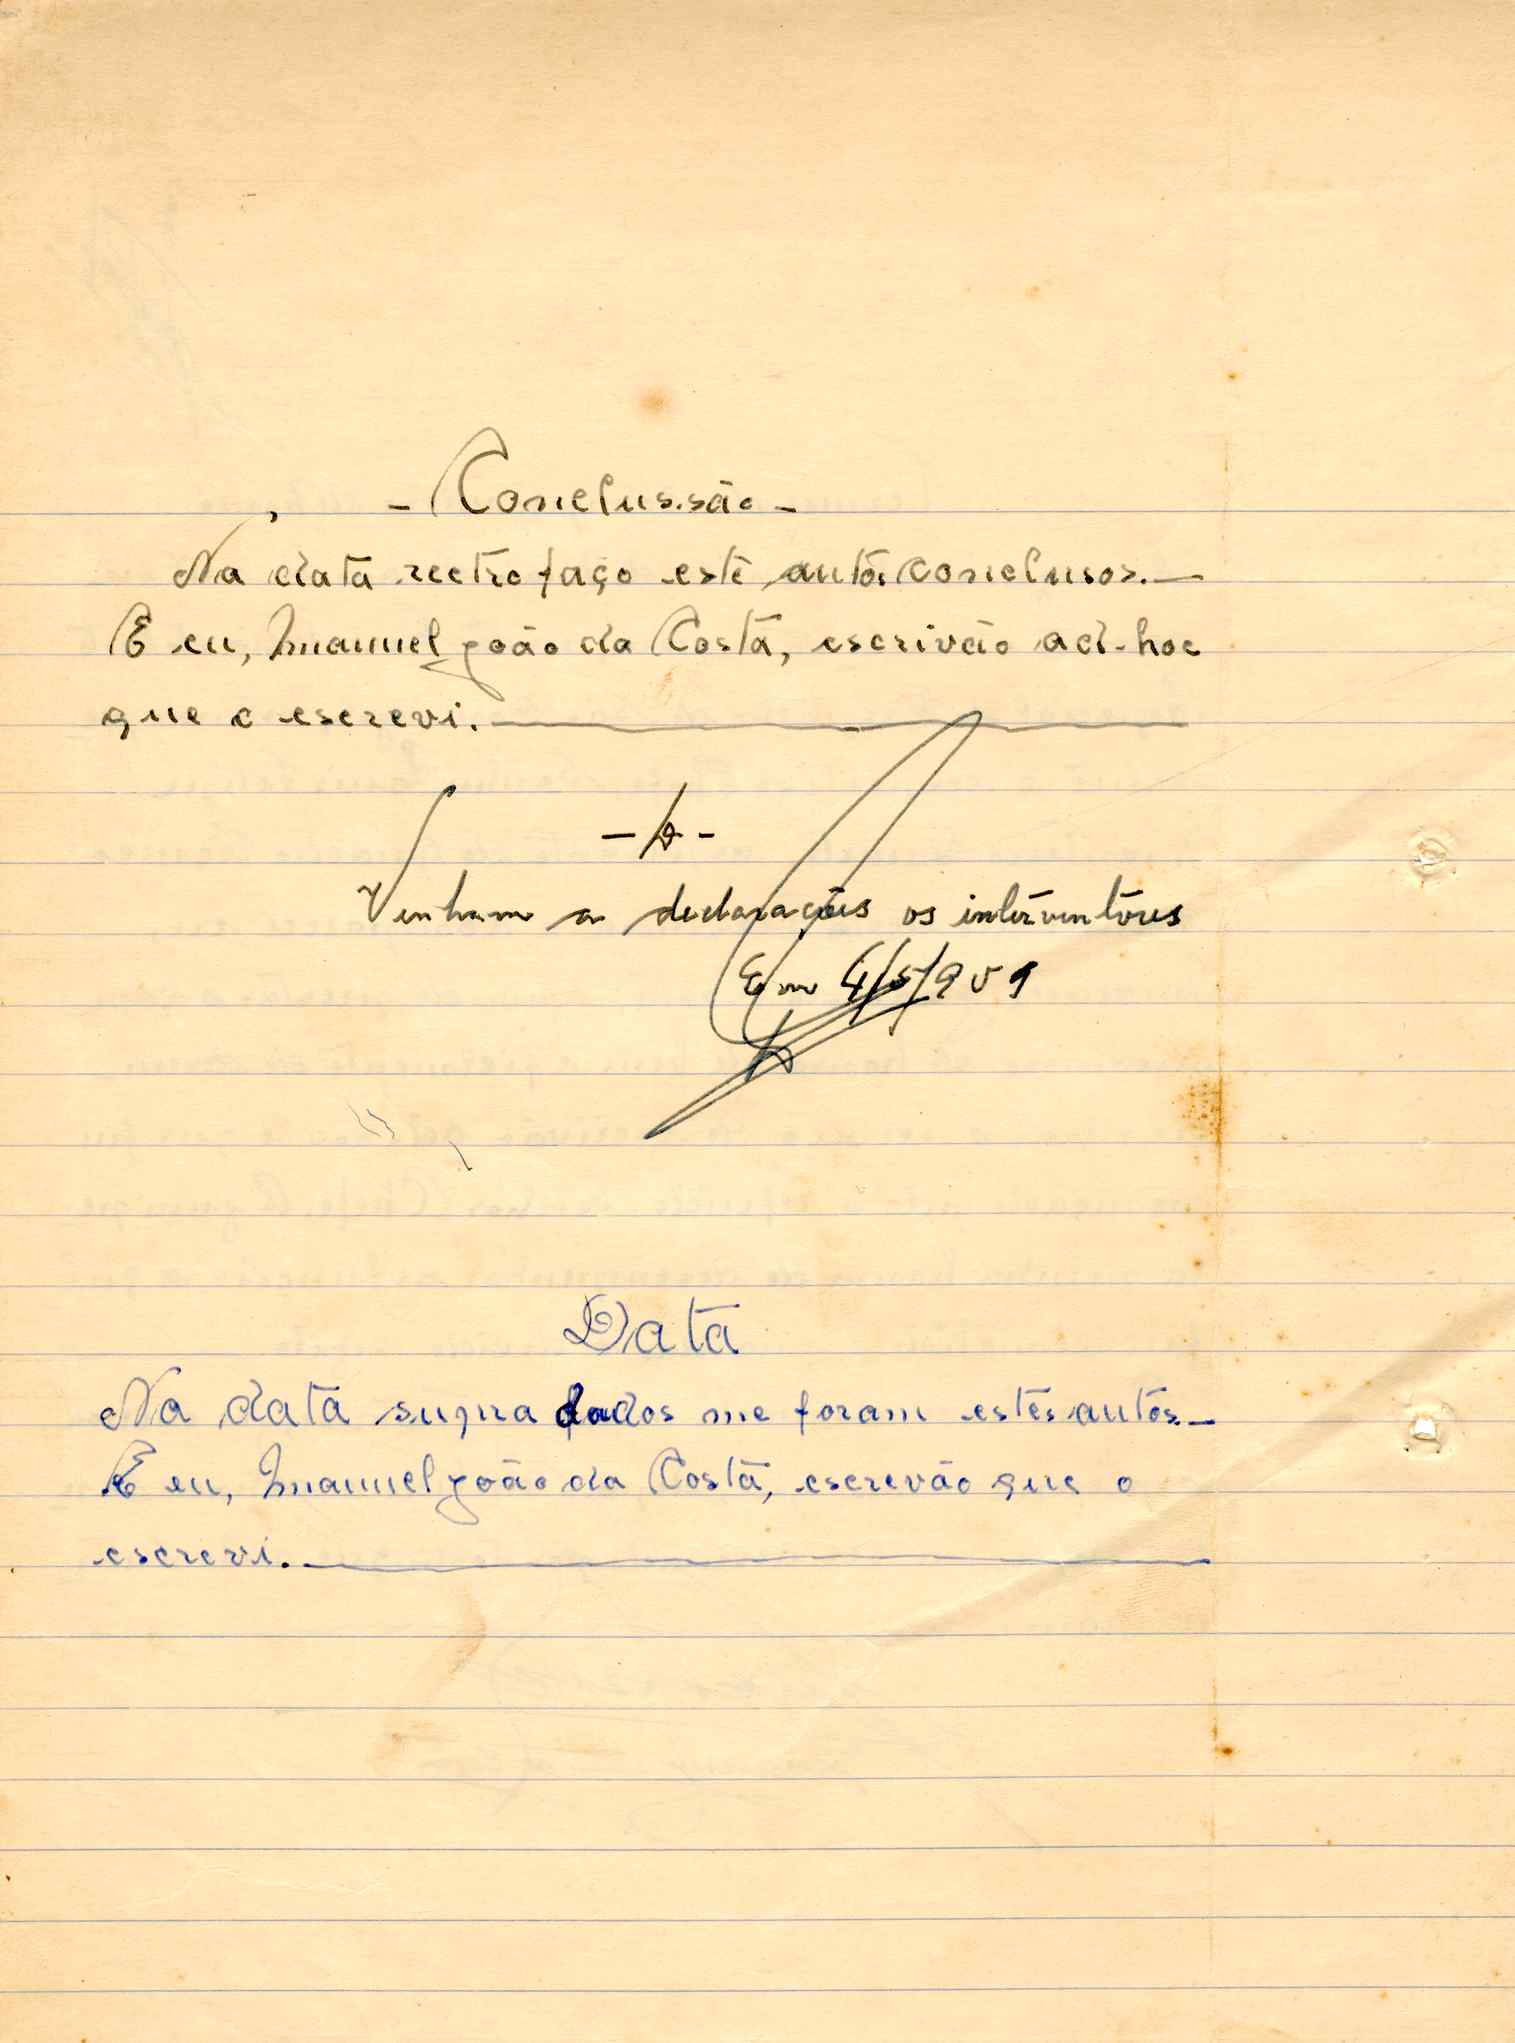 - Conclussão -
Na data rectro faço este autos conclusos. —
E eu, Manuel João da Costa, escrivão ad-hoc
que o escrevi.
Venham a declarações os interventores
Em 4/5/959
Data
Na data supra dados me foram estes autos —
E eu, Manuel João da Costa, escrevão que o
escrevi.